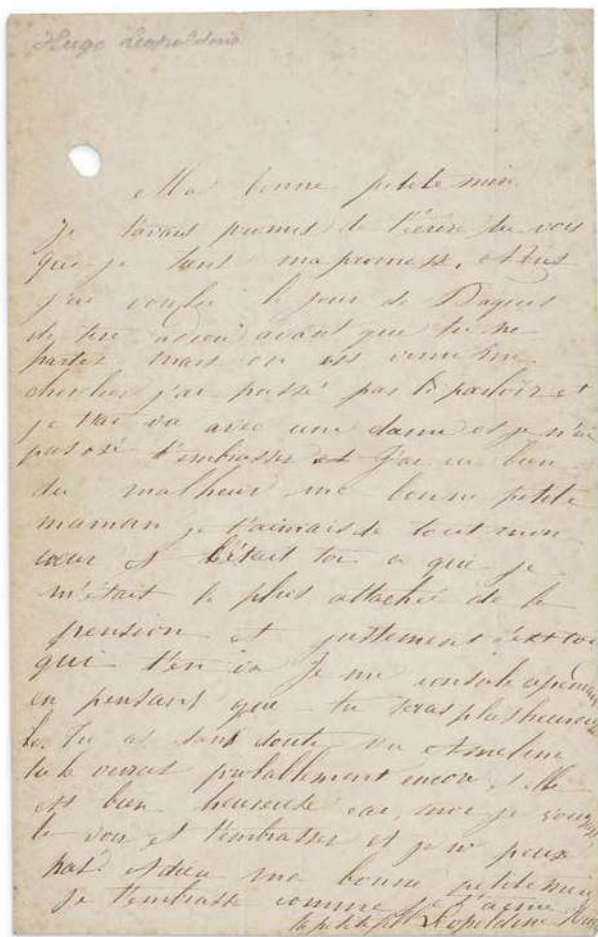 Hugo Léopoldine
Ma bonne petite mère
Je t'avais promis de t'écrire tu vois
que je tiens ma promesse.
j'ai voulu le jour de Paques
te dire adieu avant que tu ne
partes mais on est venu me
chercher j'ai passé par le parloir et
je t'ai vu avec une dame et je n'ai
pas osé t'embrasser et J'ai eu bien
du malheur ma bonne petite
maman je t'aimais de tout mon
cœur et c'était toi a qui je
m'était le plus attachée de la
pension et justement c'est toi
qui t'en va Je me console
en pensant que tu seras plus heureuse
Tu as sans doute vu
tu la verras probablement encore, elle
est bien heureuse car, moi je voudrais
te voir et t'embrasser et je ne peux
pas. Adieu ma bonne petite mère
Je t'embrasse comme je t'aime
ta petite fille Léopoldine Hugo